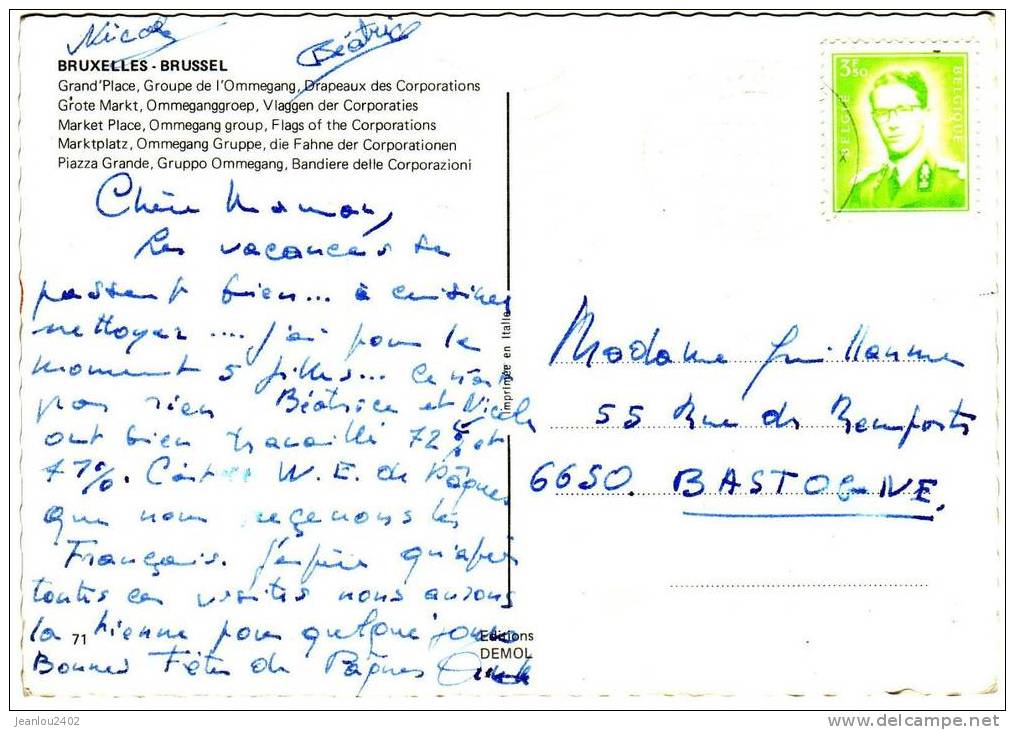 Nicole
Béatrice
BRUXELLES - BRUSSEL
Grand'Place, Groupe de l'Ommegang, Drapeaux des Corporations
Grote Markt, Ommeganggroep, Vlaggen der Corporaties
Market Place, Ommegang group, Flags of the Corporations
Marktplatz, Ommegang Gruppe, die Fahne der Corporationen
Piazza Grande, Gruppo Ommegang, Bandiere delle Corporazioni
3F50
BELGIE
BELGIQUE
Chère Maman,
Les vacances se
passent bien... à cuisiner
nettoyer.... j'ai pour le
moment 5 filles... Ce n'est
pas rien Béatrice et Nicole
ont bien travaillé 72% et
71%. C'est le W.E. de Pâques
que nous recevons les
Français. J'espère qu'après
toutes ces visites nous aurons
la tienne pour quelque jours
Bonnes Fêtes de Pâques
Imprimée en Italie
Madame Guillaume
55 Rue des Remparts
6650. BASTOGNE.
71
Editions
DEMOL
jeanlou2402
www.delcampe.net